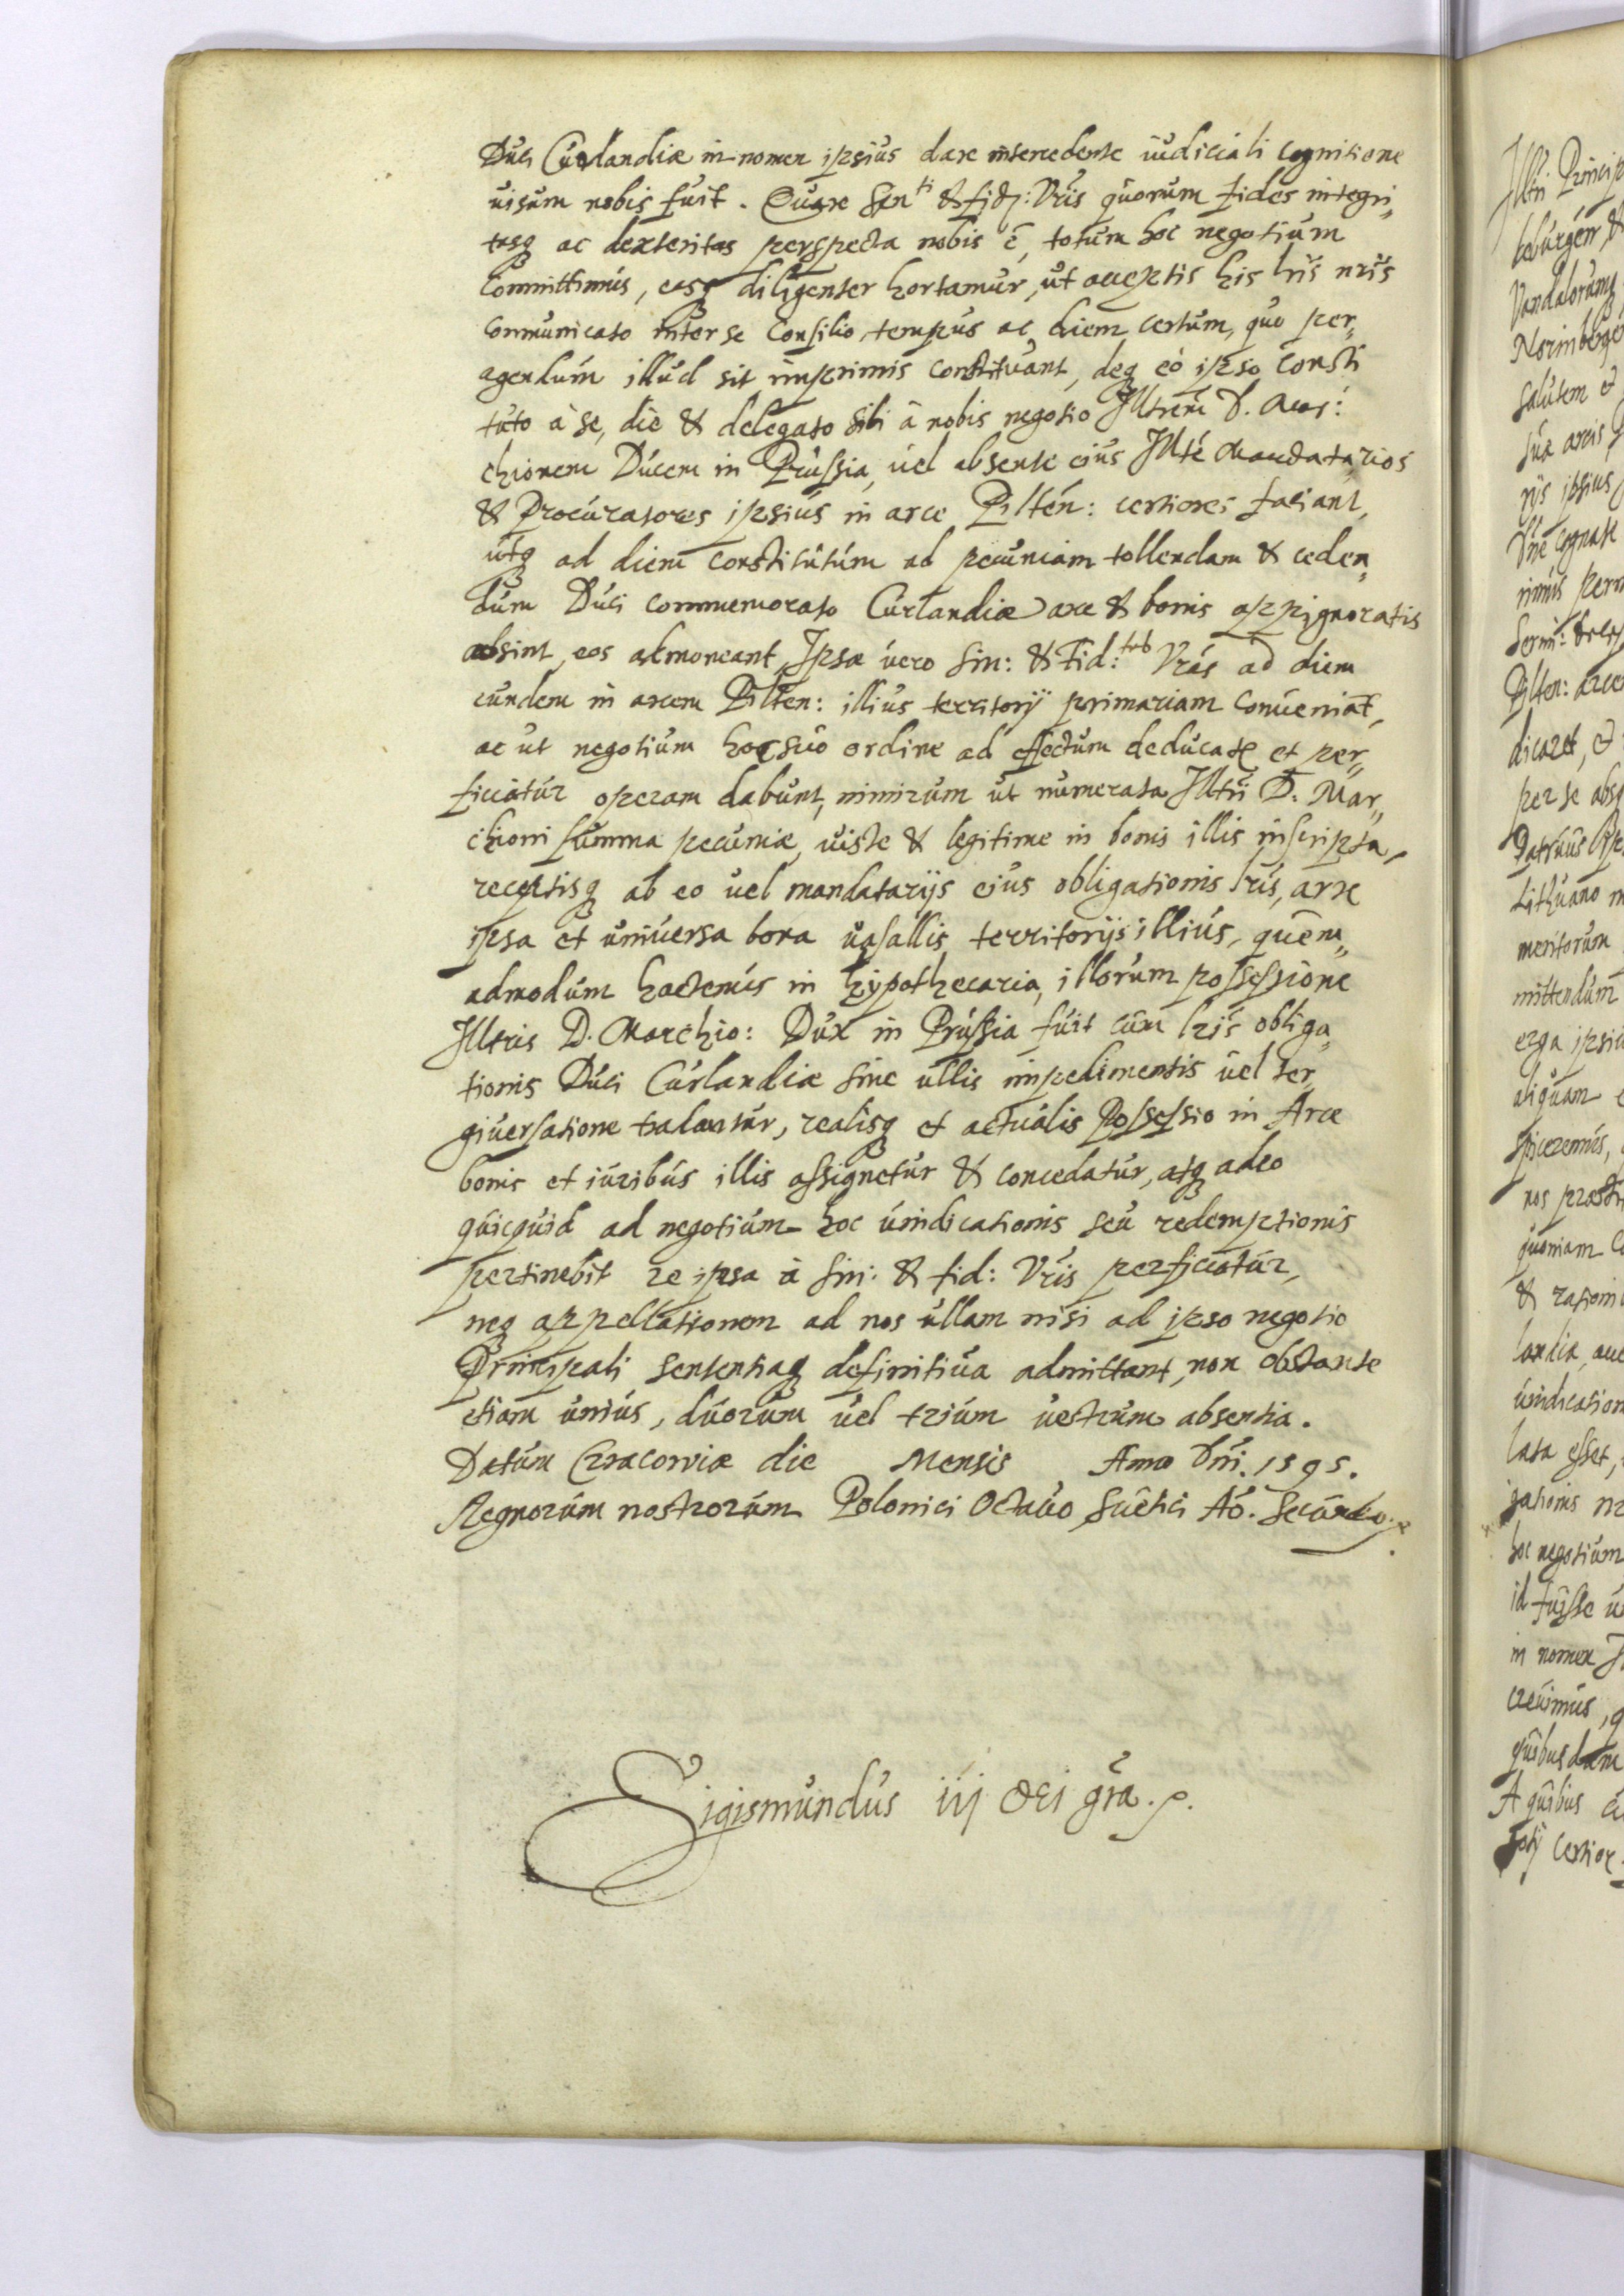 Duci Curlandiæ in nomen ipsius dare intercedente iudiciali cognitione
uisum nobis fuit. Quare Sin^ti & fid: Vris quorum fides integri,,
tasq ac dexteritas perspecta nobis ē, totum hoc negotium
Committimus, easq diligenter hortamur, ut acceptis his lris nris
communicato inter se Consilio, tempus ac diem certum, quo per,,
agendum illud sit imprimis constituant, deq eo ipso consti
tuto à se, die & delegato sibi à nobis negotio Illtrem D. Mar:
chionem Ducem in Prussia, uel absente eius Illte Mandatarios
& Procuratores ipsius in arce Pilten: certiores faciant,
utq ad diem constitutum ad pecuniam tollendam & ceden,,
dum Duci commemorato Curlandiæ arce & bonis oppignoratis
absint, eos admoneant, Ipsæ uero Sin: & Fid:^tes Vræ ad diem
eundem in arcem Pilten: illius territorij primariam conueniāt,
ac ut negotium hoc suo ordine ad effectum deducatr et per,,
ficiatur operam dabunt, nimirum ut numerata Illtri D. Mar,,
chioni summa pecuniæ, uiste & legitime in bonis illis inscripta,
receptisq ab eo uel mandatarijs eius obligationis lris, arx
ipsa et uniuersa bona uasallis territorijs illius, quem,,
admodum hactenus in hypothecaria, illorum possessione
Illtris D. Marchio: Dux in Prussia fuit cum lris obliga,,
tionis Duci Curlandiæ sine ullis impedimentis uel ter,,
giuersatione tradantur, realisq et actualis Possessio in Arce
bonis et iuribus illis assignetur & concedatur, atq adeo
quicquid ad negotium hoc uindicationis seu redemptionis
pertinebit re ipsa à Sin: & fid: Vris perficiatur,
neq appellationem ad nos ullam nisi ad ipso negotio
Principali sententiaq definitiua admittant, non obstante
etiam unius, duorum uel trium uestrum absentia.
Datum Cracoviæ die Mensis Anno Dni. 1595.
Regnorum nostrorum Polonici Octauo Suetici Ao. Secundo.
Sigismundus iij dei gra. p.
Illtri Princip
Vandalorumq
salutem &
suæ arcis P
rijs ipsius
Dne cognate
nimis perm
Pilten: arce
dicaret, &
per se abs
Lithuano m
meritorum
mittendum
erga ipsiu
aliquam e
spiceremus,
nos præst
quoniam C
& rationi
landiæ, aue
uindication
lata esset,
gationis nr
hoc negotium
id fuisse u
in nomen I
creuimus, q
quibusdam
A quibus
certior